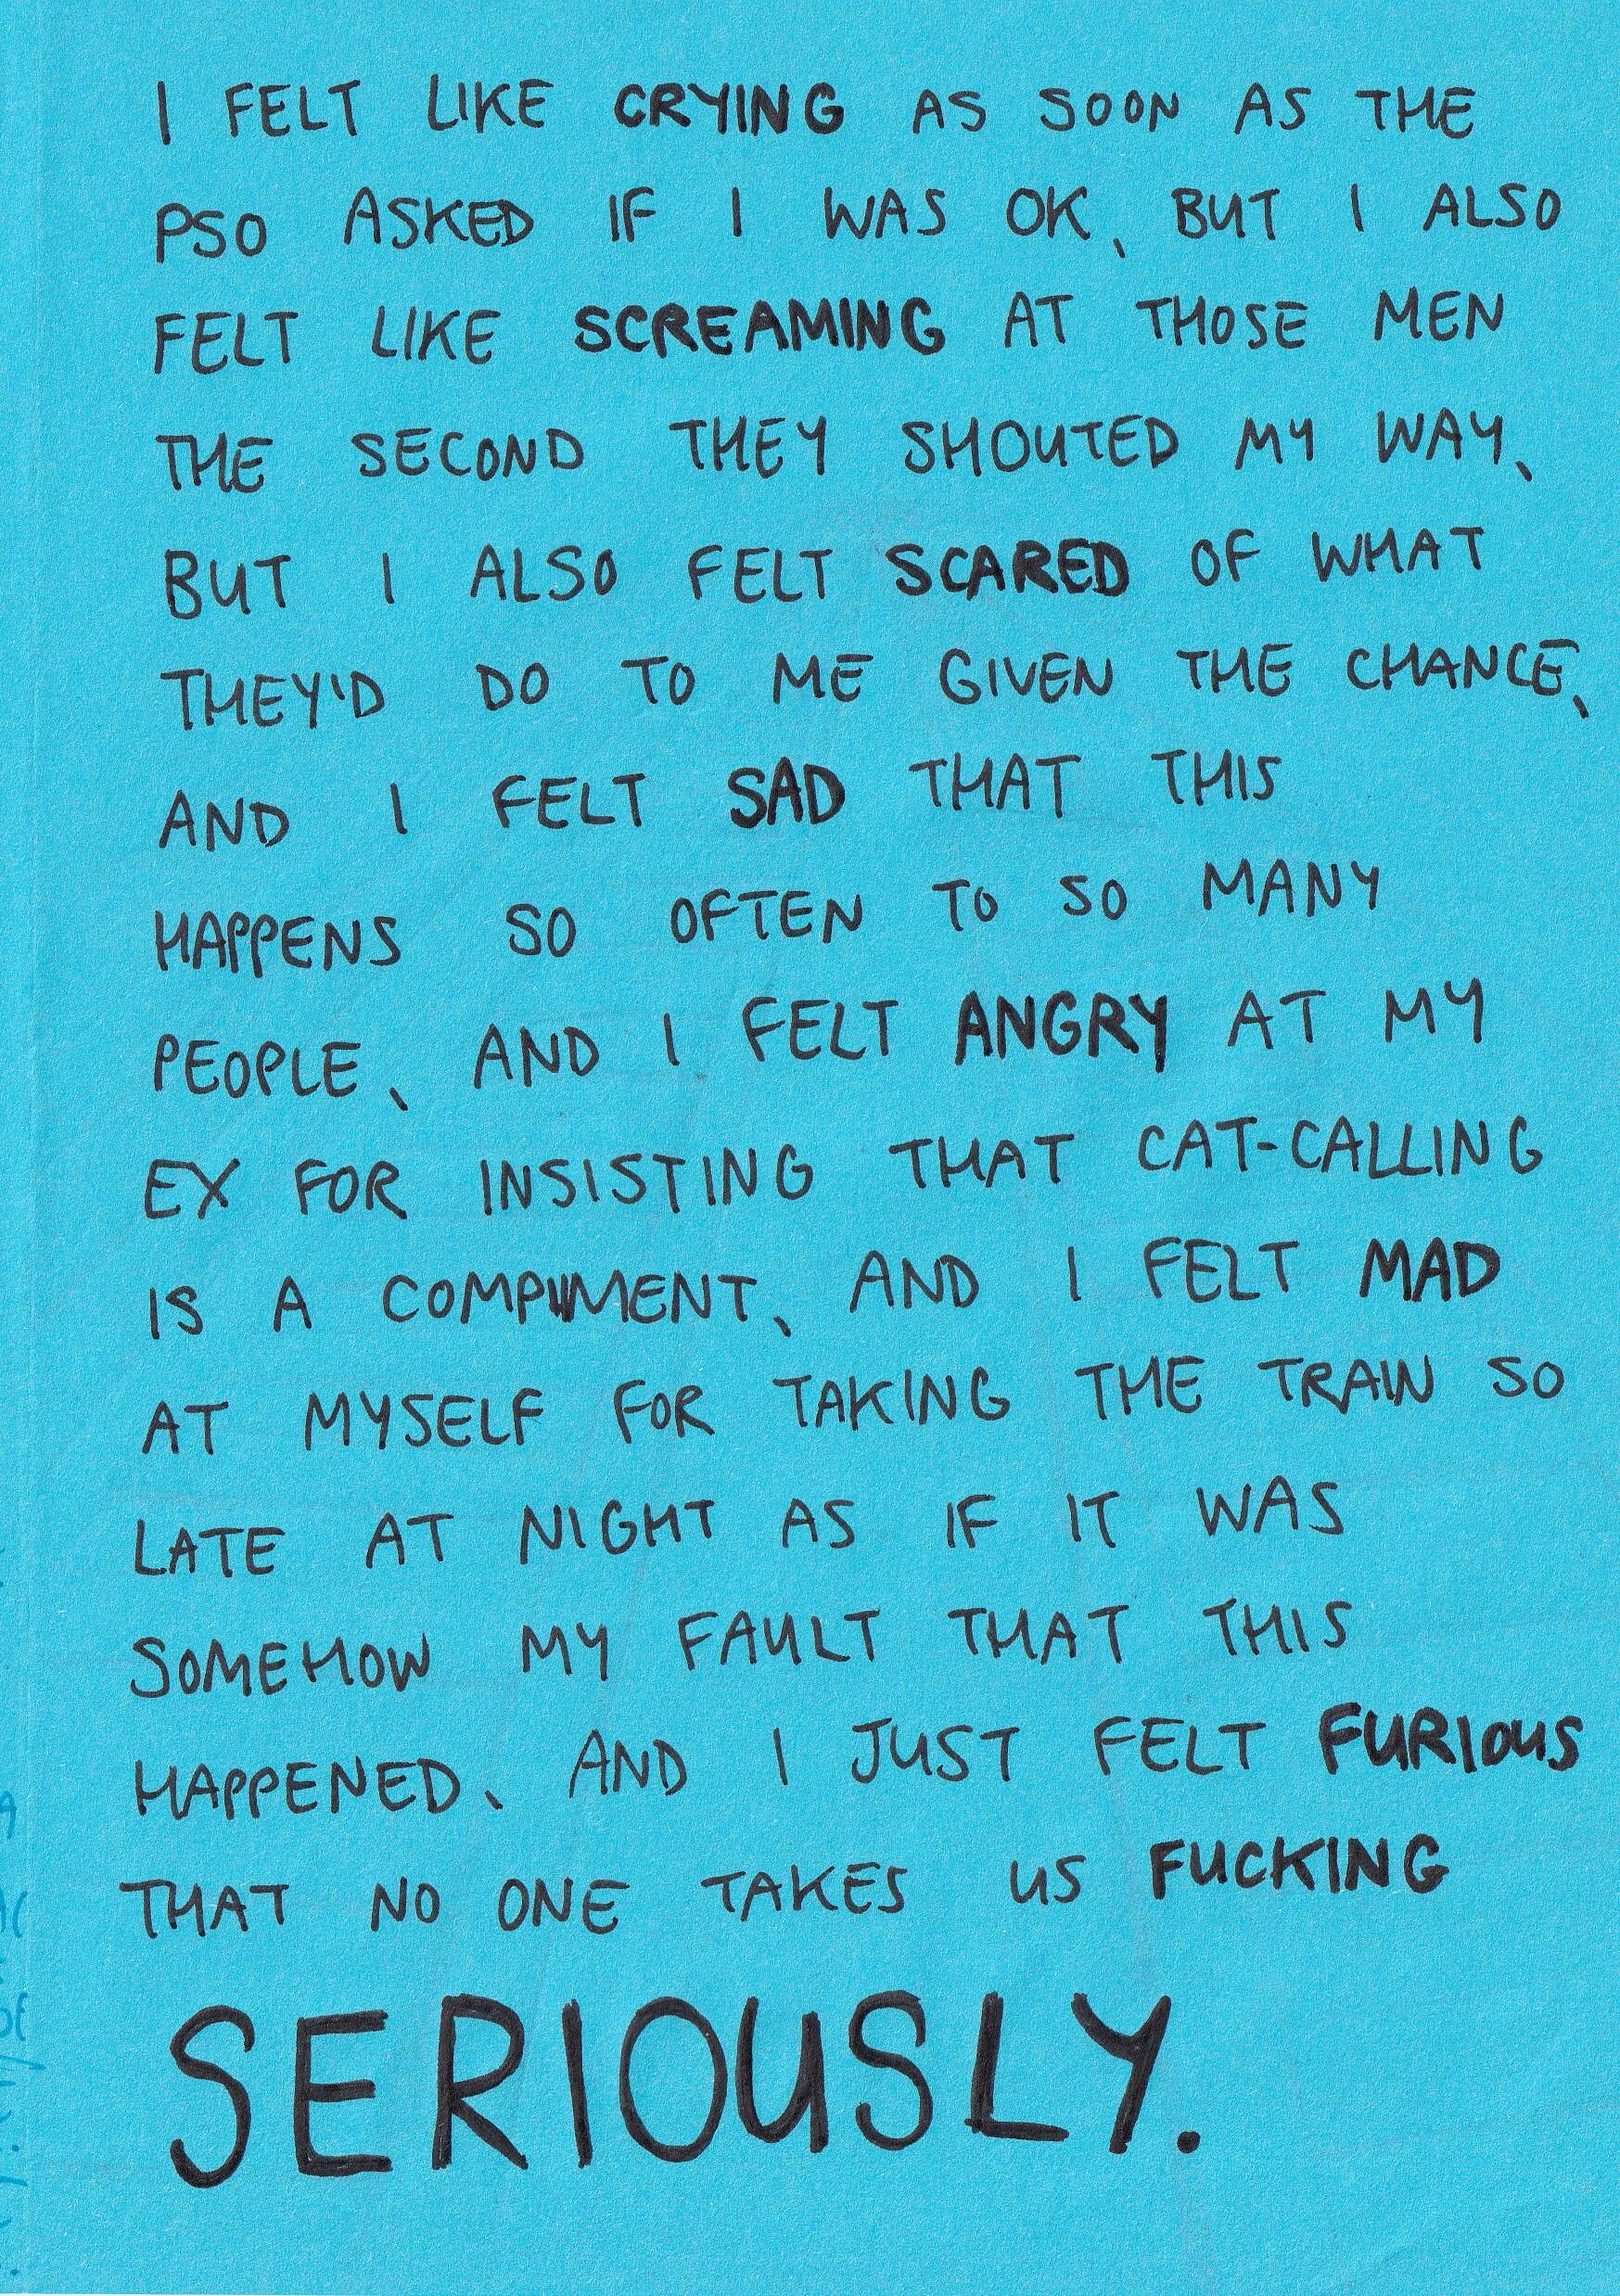 I FELT LIKE CRYING AS SOON AS THE
PSO ASKED IF I WAS OK, BUT I ALSO
FELT LIKE SCREAMING AT THOSE MEN
THE SECOND THEY SHOUTED MY WAY,
BUT I ALSO FELT SCARED OF WHAT
THEY'D DO TO ME GIVEN THE CHANCE,
AND I FELT SAD THAT THIS
HAPPENS SO OFTEN TO SO MANY
PEOPLE, AND I FELT ANGRY AT MY
EX FOR INSISTING THAT CAT-CALLING
IS A COMPLIMENT, AND I FELT MAD
AT MYSELF FOR TAKING THE TRAIN SO
LATE AT NIGHT AS IF IT WAS
SOMEHOW MY FAULT THAT THIS
HAPPENED, AND I JUST FELT FURIOUS
THAT NO ONE TAKES US FUCKING
SERIOUSLY.